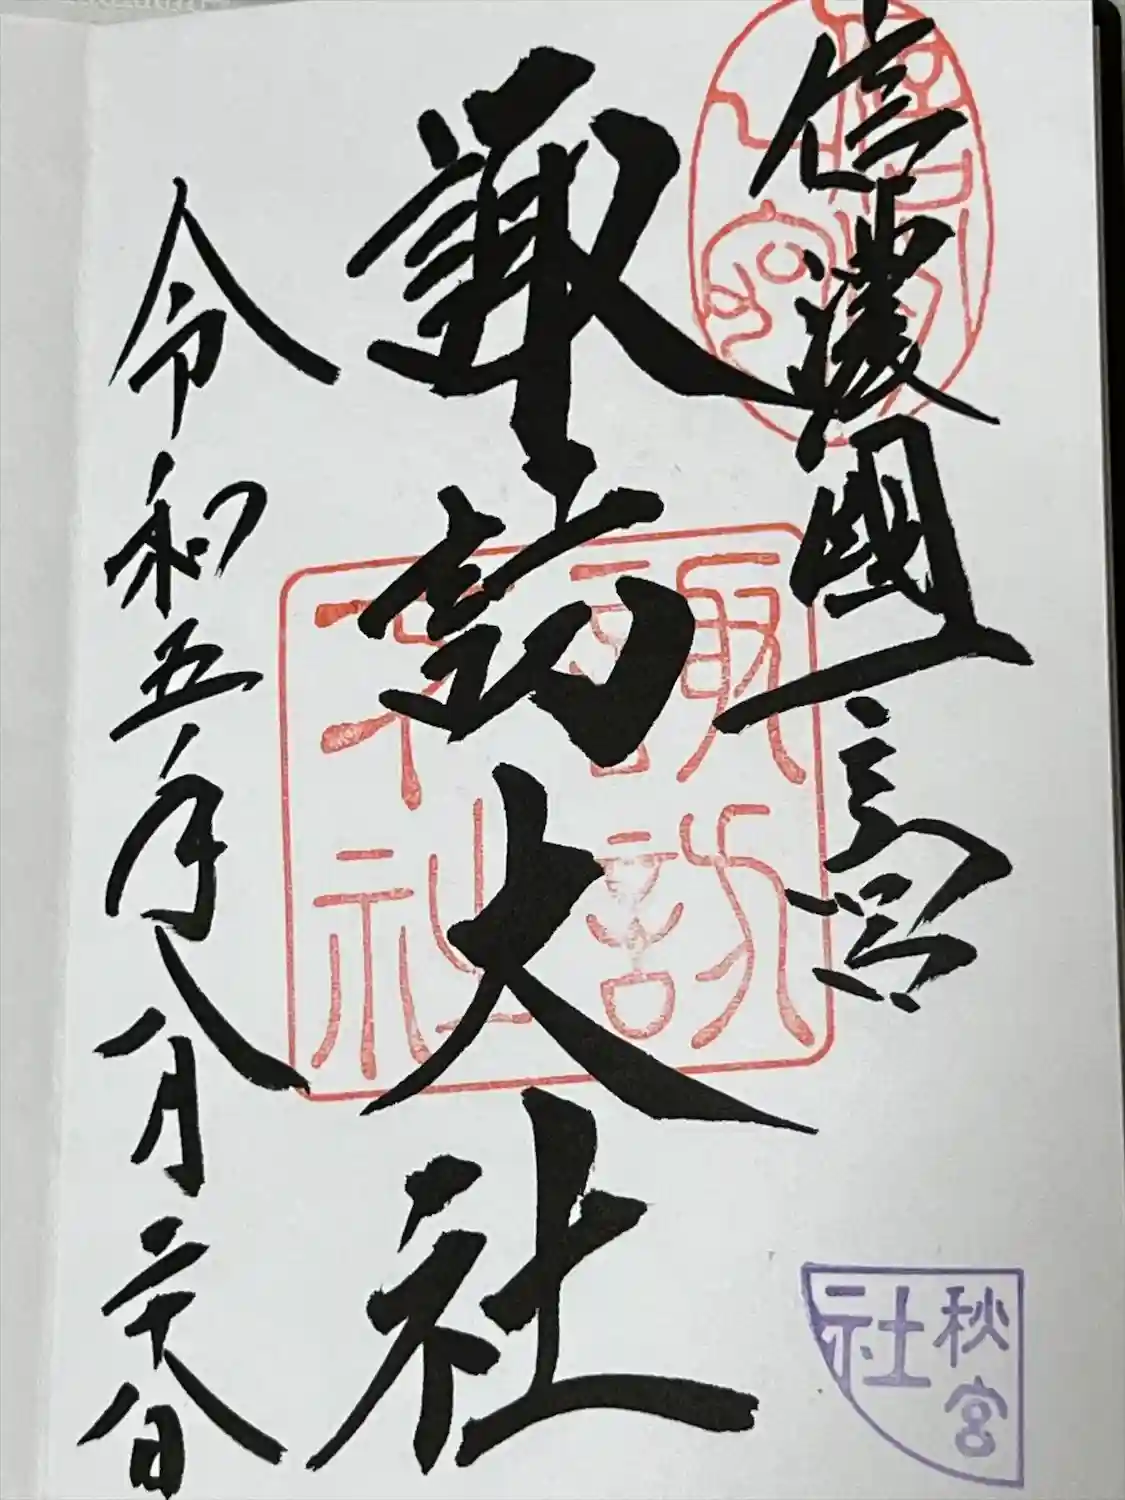 信濃國一宮
諏訪大社
令和五年八月二十八日
諏訪大社
秋宮
社